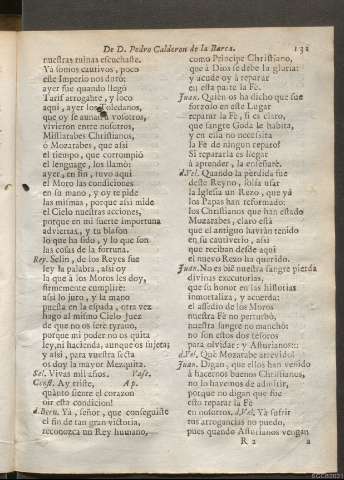 De D. Pedro Calderon de la Barca. 132
nuestras ruinas escuchaste.
Ya somos cautivos, poco
este Imperio nos duró:
ayer fue quando llegó
Tarif arrogante, y loco
aqui, ayer los Toledanos,
que oy se aunan vosotros,
vivieron entre nosotros,
Mistiarabes Christianos,
ó Mozarabes, que asi
el tiempo, que corrompió
el lenguage, los llamó:
ayer, en fin, tuvo aqui
el Moro las condiciones
en su mano, y oy te pide
las mismas, porque asi mide
el Cielo nuestras acciones,
porque en mi suerte importuna
adviertas, y tu blason
lo que ha sido, y lo que son
las cosas de la fortuna.
Rey. Selin, de los Reyes fue
ley la palabra, asi oy
la que à los Moros les doy,
firmemente cumpliré:
asi lo juro, y la mano
puesta en la espada, otra vez
hago al mismo Cielo Juez
de que no os seré tyrano,
porque mi poder no os quita
ley, ni hacienda, aunque os sujeta;
y asi, para vuestra secta
os doy la mayor Mezquita.
Sel. Vivas mil años. Vase.
Const. Ay triste, Ap.
quánto siente el corazon
oir esta condicion!
d. Bern. Yá, señor, que conseguiste
el fin de tan gran victoria,
reconozca un Rey humano,
como Principe Christiano,
que à Dios se debe la gloria:
y acude oy à reparar
en esta parte la Fé.
Juan. Quién os ha dicho que fue
forzoso en este Lugar
reparar la Fé, si es claro,
que sangre Goda le habita,
y en ella no necesita
la Fé de ningun reparo?
Si repararla es llegar
à aprender, la enseñaré.
d.Vel. Quando la perdida fue
deste Reyno, solia usar
la Iglesia un Rezo, que yá
los Papas han reformado:
los Christianos que han estado
Mozarabes, claro está
que el antiguo havrán tenido
en su cautiverio, asi
que reciban desde aqui
el nuevo Rezo ha querido.
Juan. No es bié nuestra sangre pierda
divinas executorias,
que su honor en las historias
inmortaliza, y acuerda:
el assedio de los Moros
nuestra Fé no perturbó,
nuestra sangre no manchó:
no son estos dos tesoros
para olvidar: y Asturianos::
d.Vel. Qué Mozarabe atrevido!
Juan. Digan, que ellos han venido
à hacernos buenos Christianos,
no lo havemos de admitir,
porque no digan que fue
esto reparar la Fé
en nosotros. d.Vel. Yá sufrir
tus arrogancias no puedo,
pues quando Asturianos vengan
R 2 a